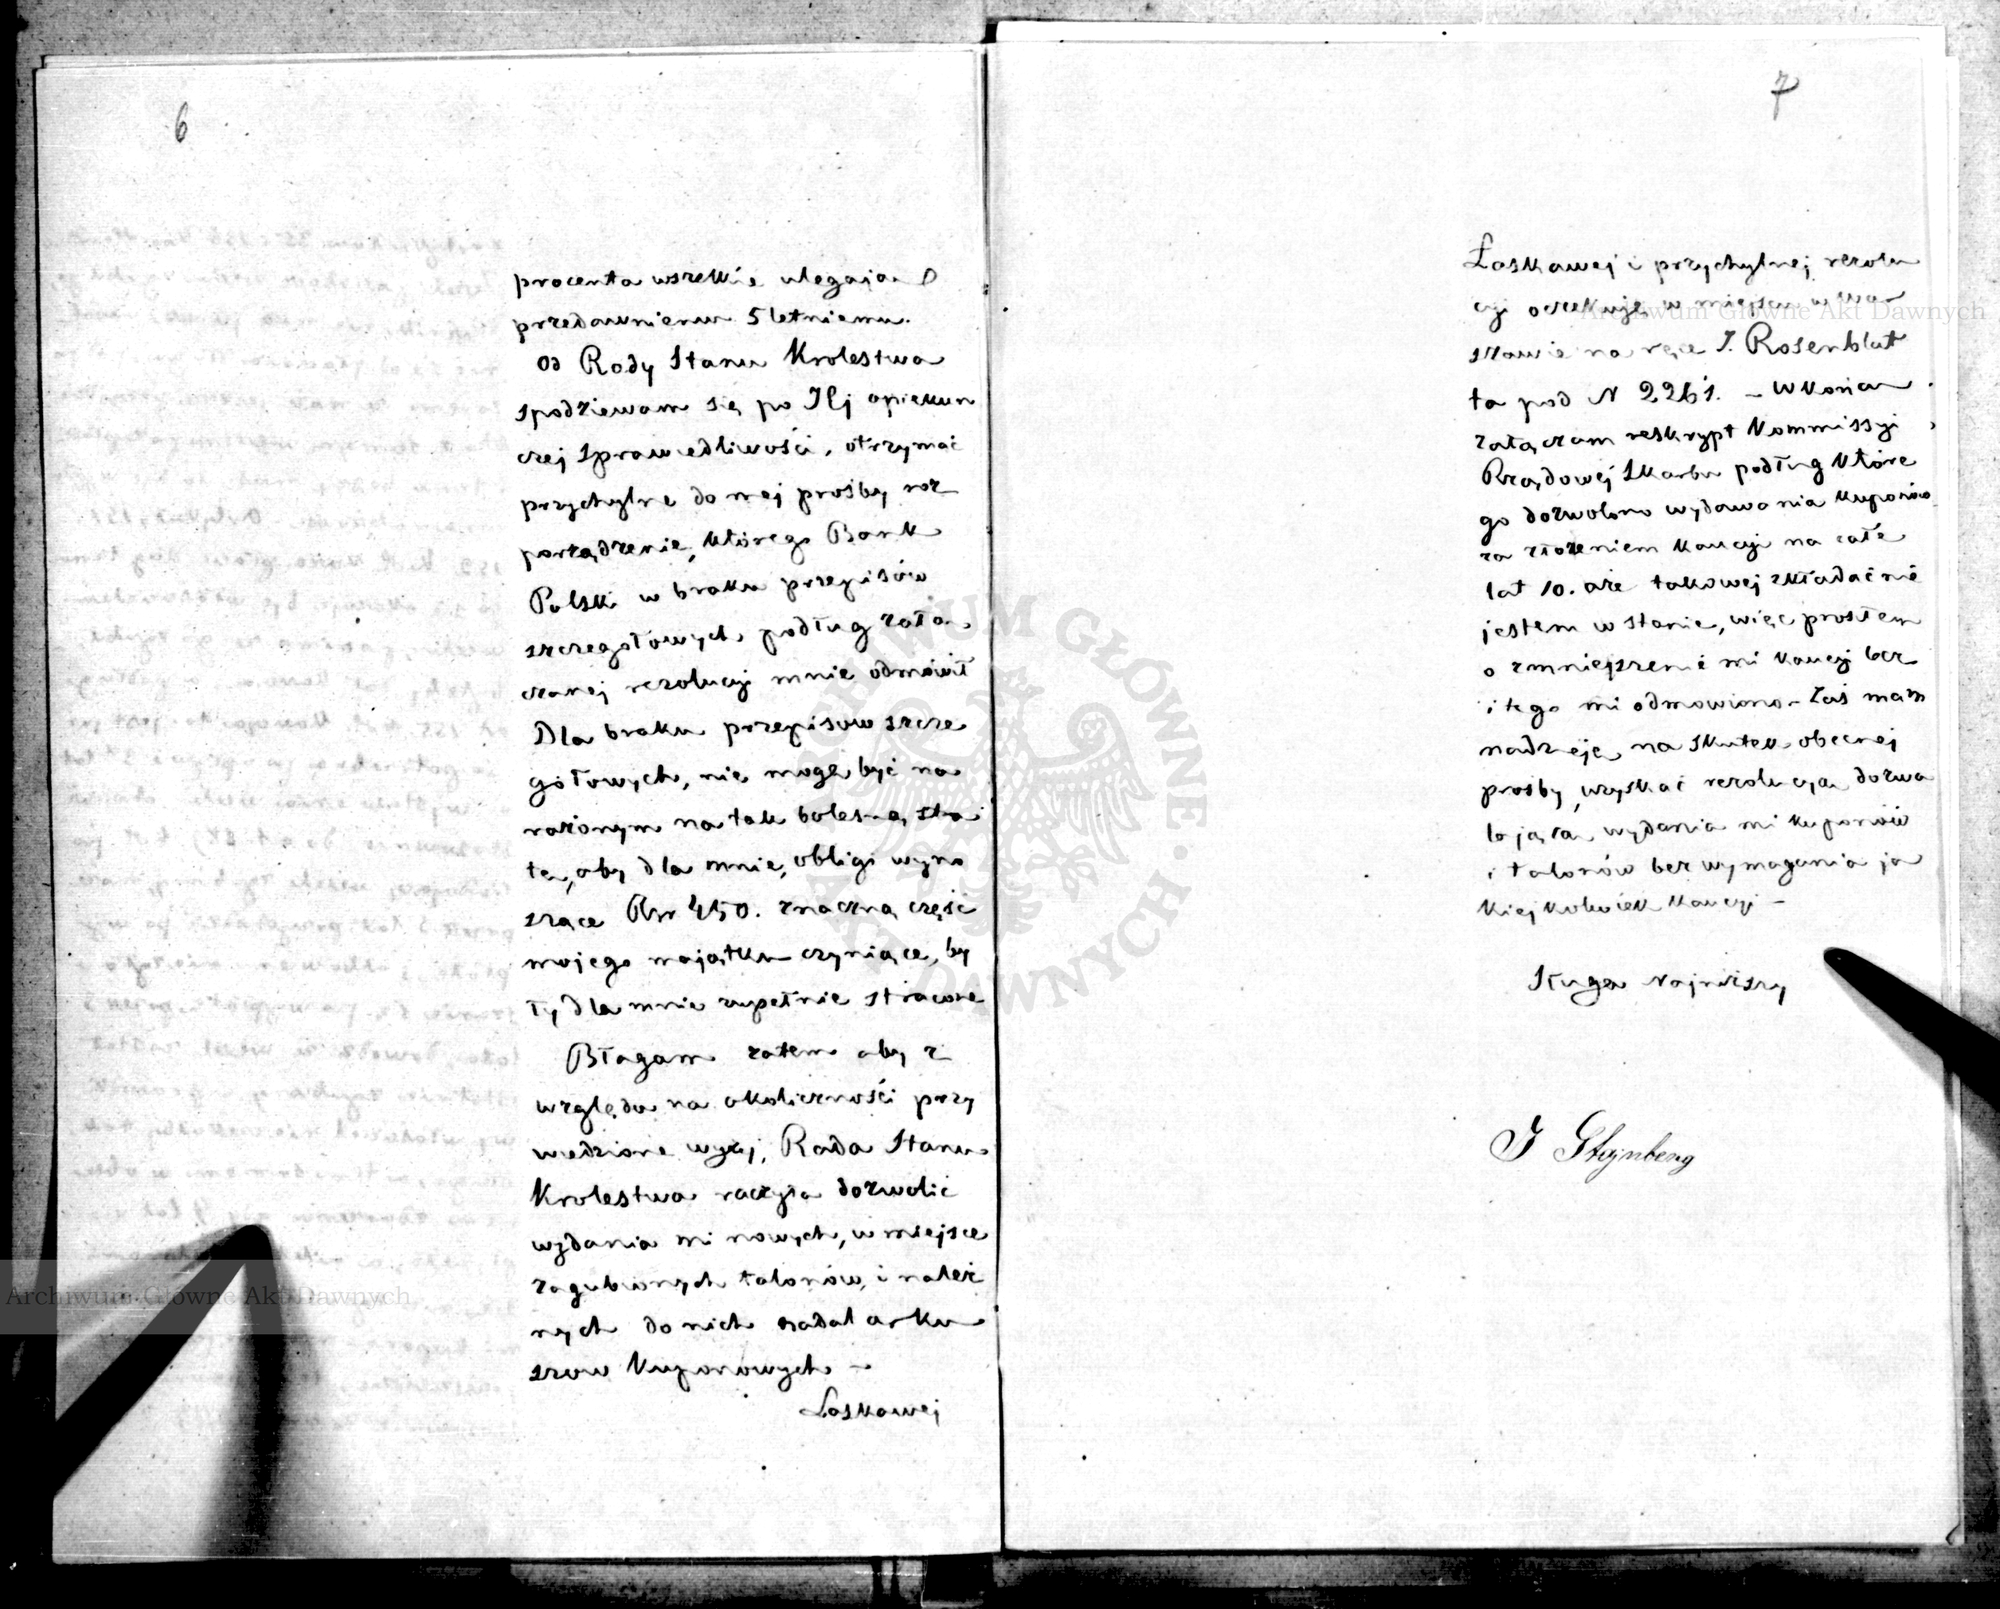 6
procenta wszelkie ulegaja
przedawnieniu 5 letniemu.
Od Rady Stanu Krolestwa
spodziewam się po Jej opiekun
czej sprawiedliwości, otrzymać
przychylne do mej prośby roz
porządzenie, którego Bank
Polski w braku przepisów
szczegołowych podług załą
czonej rezolucyi mnie odmówił
Dla braku przepisów szcze
gółowych, nie mogę być na
rażonym na tak bolesną stra
tę, aby dla mnie, obligi wyno
szące Rsr 450. znaczną część
mojego majątku czyniące, by
ły dla mnie zupełnie stracone
Błagam zatem aby z
względu na okoliczności przy
wiedzione wyżej, Rada Stanu
Krolestwa raczyła dozwolić
wydania mi nowych, w miejsce
zagubionych talonów, i należ
nych do nich nadal arku
szow kuponowych –
Łaskawej
7
Łaskawej i przychylnej rezolu
cyi oczekuję w miejscu w War
szawie na ręce J. Rosenblat
ta pod N 2261. – W końcu
załączam reskrypt Kommissyi
Rządowej Skarbu podług które
go dozwolono wydawania kuponów
za złożeniem kaucyi na całe
lat 10. aże takowej składać nie
jestem w stanie, więc prosiłem
o zmniejszenie mi kaucyi lecz
i tego mi odmowiono – Zaś mam
nadzieję na skutek obecnej
prośby, uzyskać rezolucya dozwa
lającą wydania mi kuponów
i talonów bez wymagania ja
kiejkolwiek kaucyi –
Sługa Najniższy
J Sztejnberg
Archiwum Główne Akt Dawnych
Archiwum Główne Akt Dawnych
ARCHIWUM GŁÓWNE AKT DAWNYCH